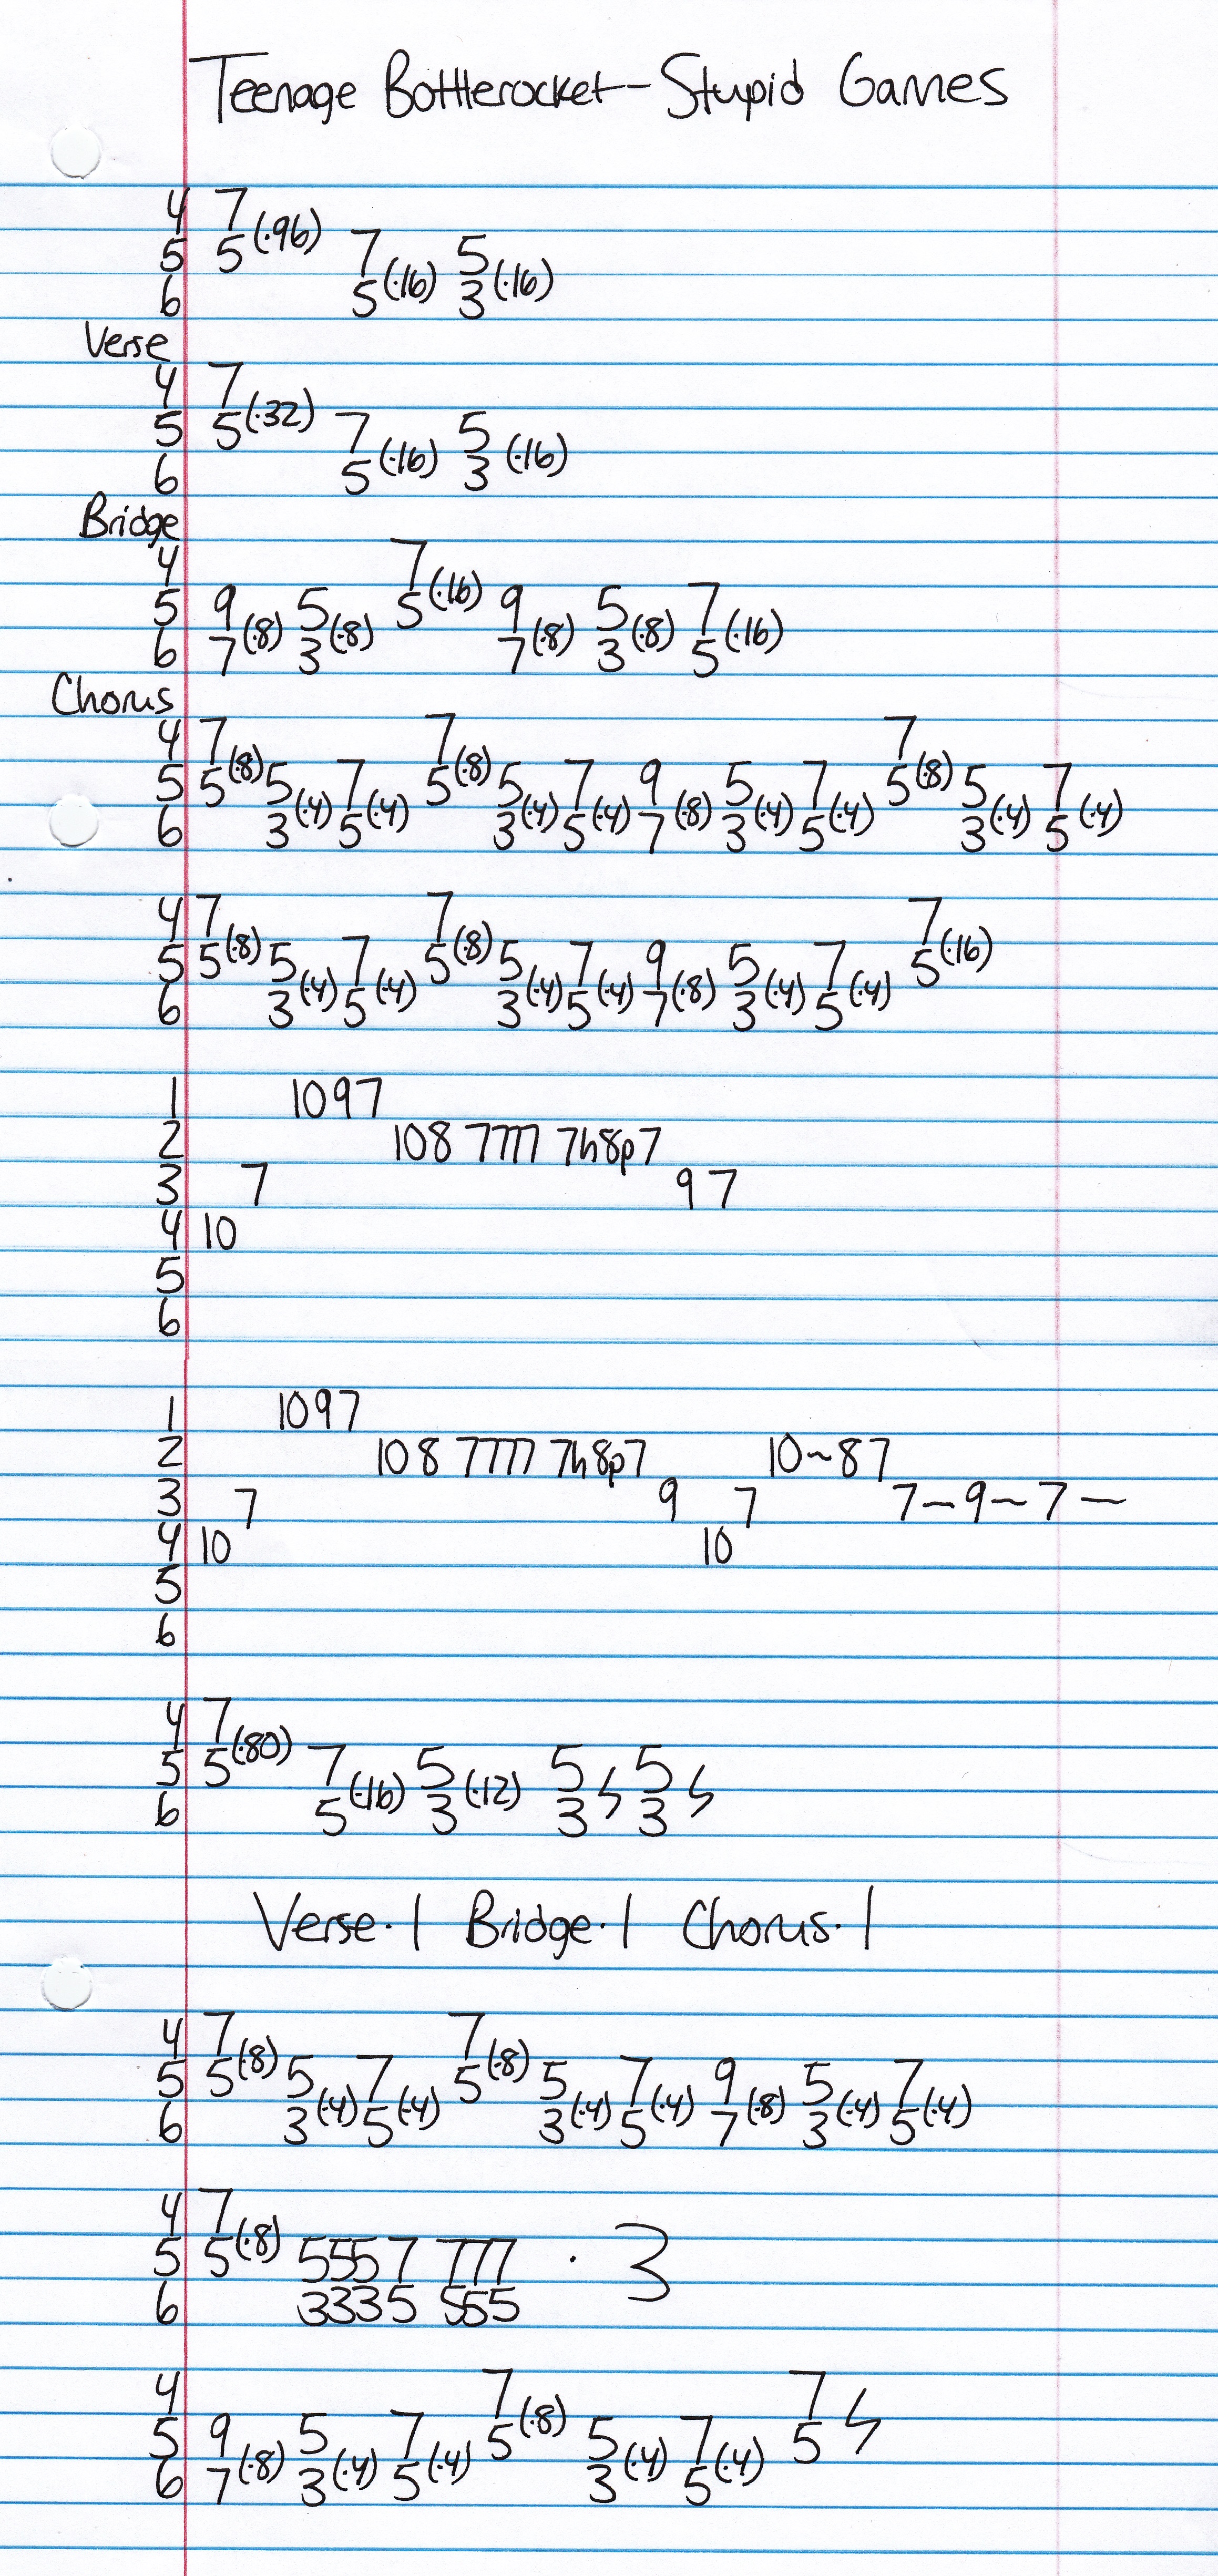 Teenage Bottlerocket - Stupid Games
4 7
5 5(·96) 7 5
6 5(·16) 3(·16)
Verse
4 7
5 5(·32) 7 5
6 5(·16) 3(·16)
Bridge
4 7
5 9 5 5(·16) 9 5 7
6 7(·8) 3(·8) 7(·8) 3(·8) 5(·16)
Chorus
4 7 7 7
5 5(·8) 5 7 5(·8) 5 7 9 5 7 5(·8) 5 7
6 3(·4) 5(·4) 3(·4) 5(·4) 7(·8) 3(·4) 5(·4) 3(·4) 5(·4)
4 7 7 7
5 5(·8) 5 7 5(·8) 5 7 9 5 7 5(·16)
6 3(·4) 5(·4) 3(·4) 5(·4) 7(·8) 3(·4) 5(·4)
1 10 9 7
2 10 8 7 7 7 7h8p7
3 7 9 7
4 10
5
6
1 10 9 7
2 10 8 7 7 7 7 7h8p7 10~8 7
3 7 9 7 7~9~7~
4 10 10
5
6
4 7
5 5(·80) 7 5 5 5
6 5(·16) 3(·12) 3 3
Verse·1 Bridge·1 Chorus·1
4 7 7
5 5(·8) 5 7 5(·8) 5 7 9 5 7
6 3(·4) 5(·4) 3(·4) 5(·4) 7(·8) 3(·4) 5(·4)
4 7
5 5(·8) 5 5 5 7 7 7 7 · 3
6 3 3 3 5 5 5 5
4 7 7
5 9 5 7 5(·8) 5 7 5
6 7(·8) 3(·4) 5(·4) 3(·4) 5(·4)